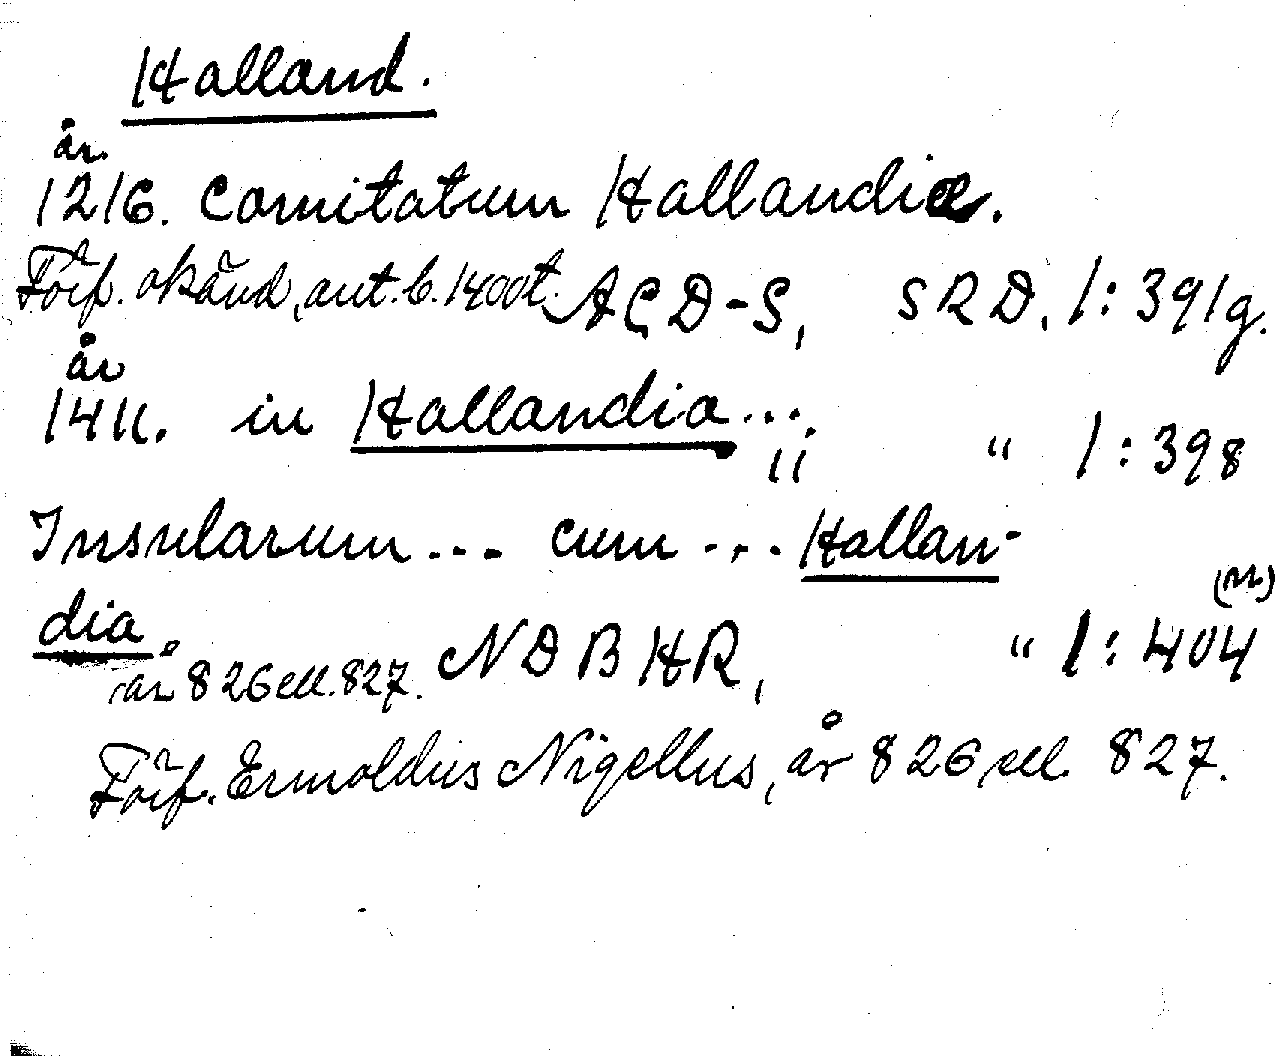 Halland.
år
1216. Comitatum Hallandiæ.
Förf. okänd, ant. b. 1400t. ACD-S, SRD. 1:391g.
år
1411. in Hallandia...
" " 1:398
Insularum... cum ... Hallan-
dia. NDBHR, " 1:404 (n.)
år 826 ell. 827.
Förf. Ermoldus Nigellus, år 826 ell 827.